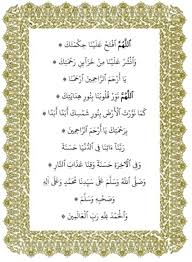 اَللّٰهُمَّ افْتَحْ عَلَيْنَا حِكْمَتَكَ
وَانْشُرْ عَلَيْنَا مِنْ خَزَآئِنِ رَحْمَتِكَ
يَا أَرْحَمَ الرَّاحِمِيْنَ *
اَللّٰهُمَّ نَوِّرْ قُلُوْبَنَا بِنُوْرِ هِدَايَتِكَ
كَمَا نَوَّرْتَ الْأَرْضَ بِنُوْرِ شَمْسِكَ أَبَدًا أَبَدًا *
بِرَحْمَتِكَ يَا أَرْحَمَ الرَّاحِمِيْنَ *
رَبَّنَا ءَاتِنَا فِي الدُّنْيَا حَسَنَةً
وَفِي الْآخِرَةِ حَسَنَةً وَقِنَا عَذَابَ النَّارِ *
وَصَلَّى اللّٰهُ وَسَلَّمَ عَلَى سَيِّدِنَا مُحَمَّدٍ وَعَلَى آلِهِ
وَصَحْبِهِ وَسَلَّمَ *
وَالْحَمْدُ لِلّٰهِ رَبِّ الْعَالَمِيْنَ *